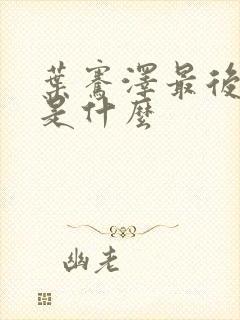 葉騫澤最後
是什麼
幽老